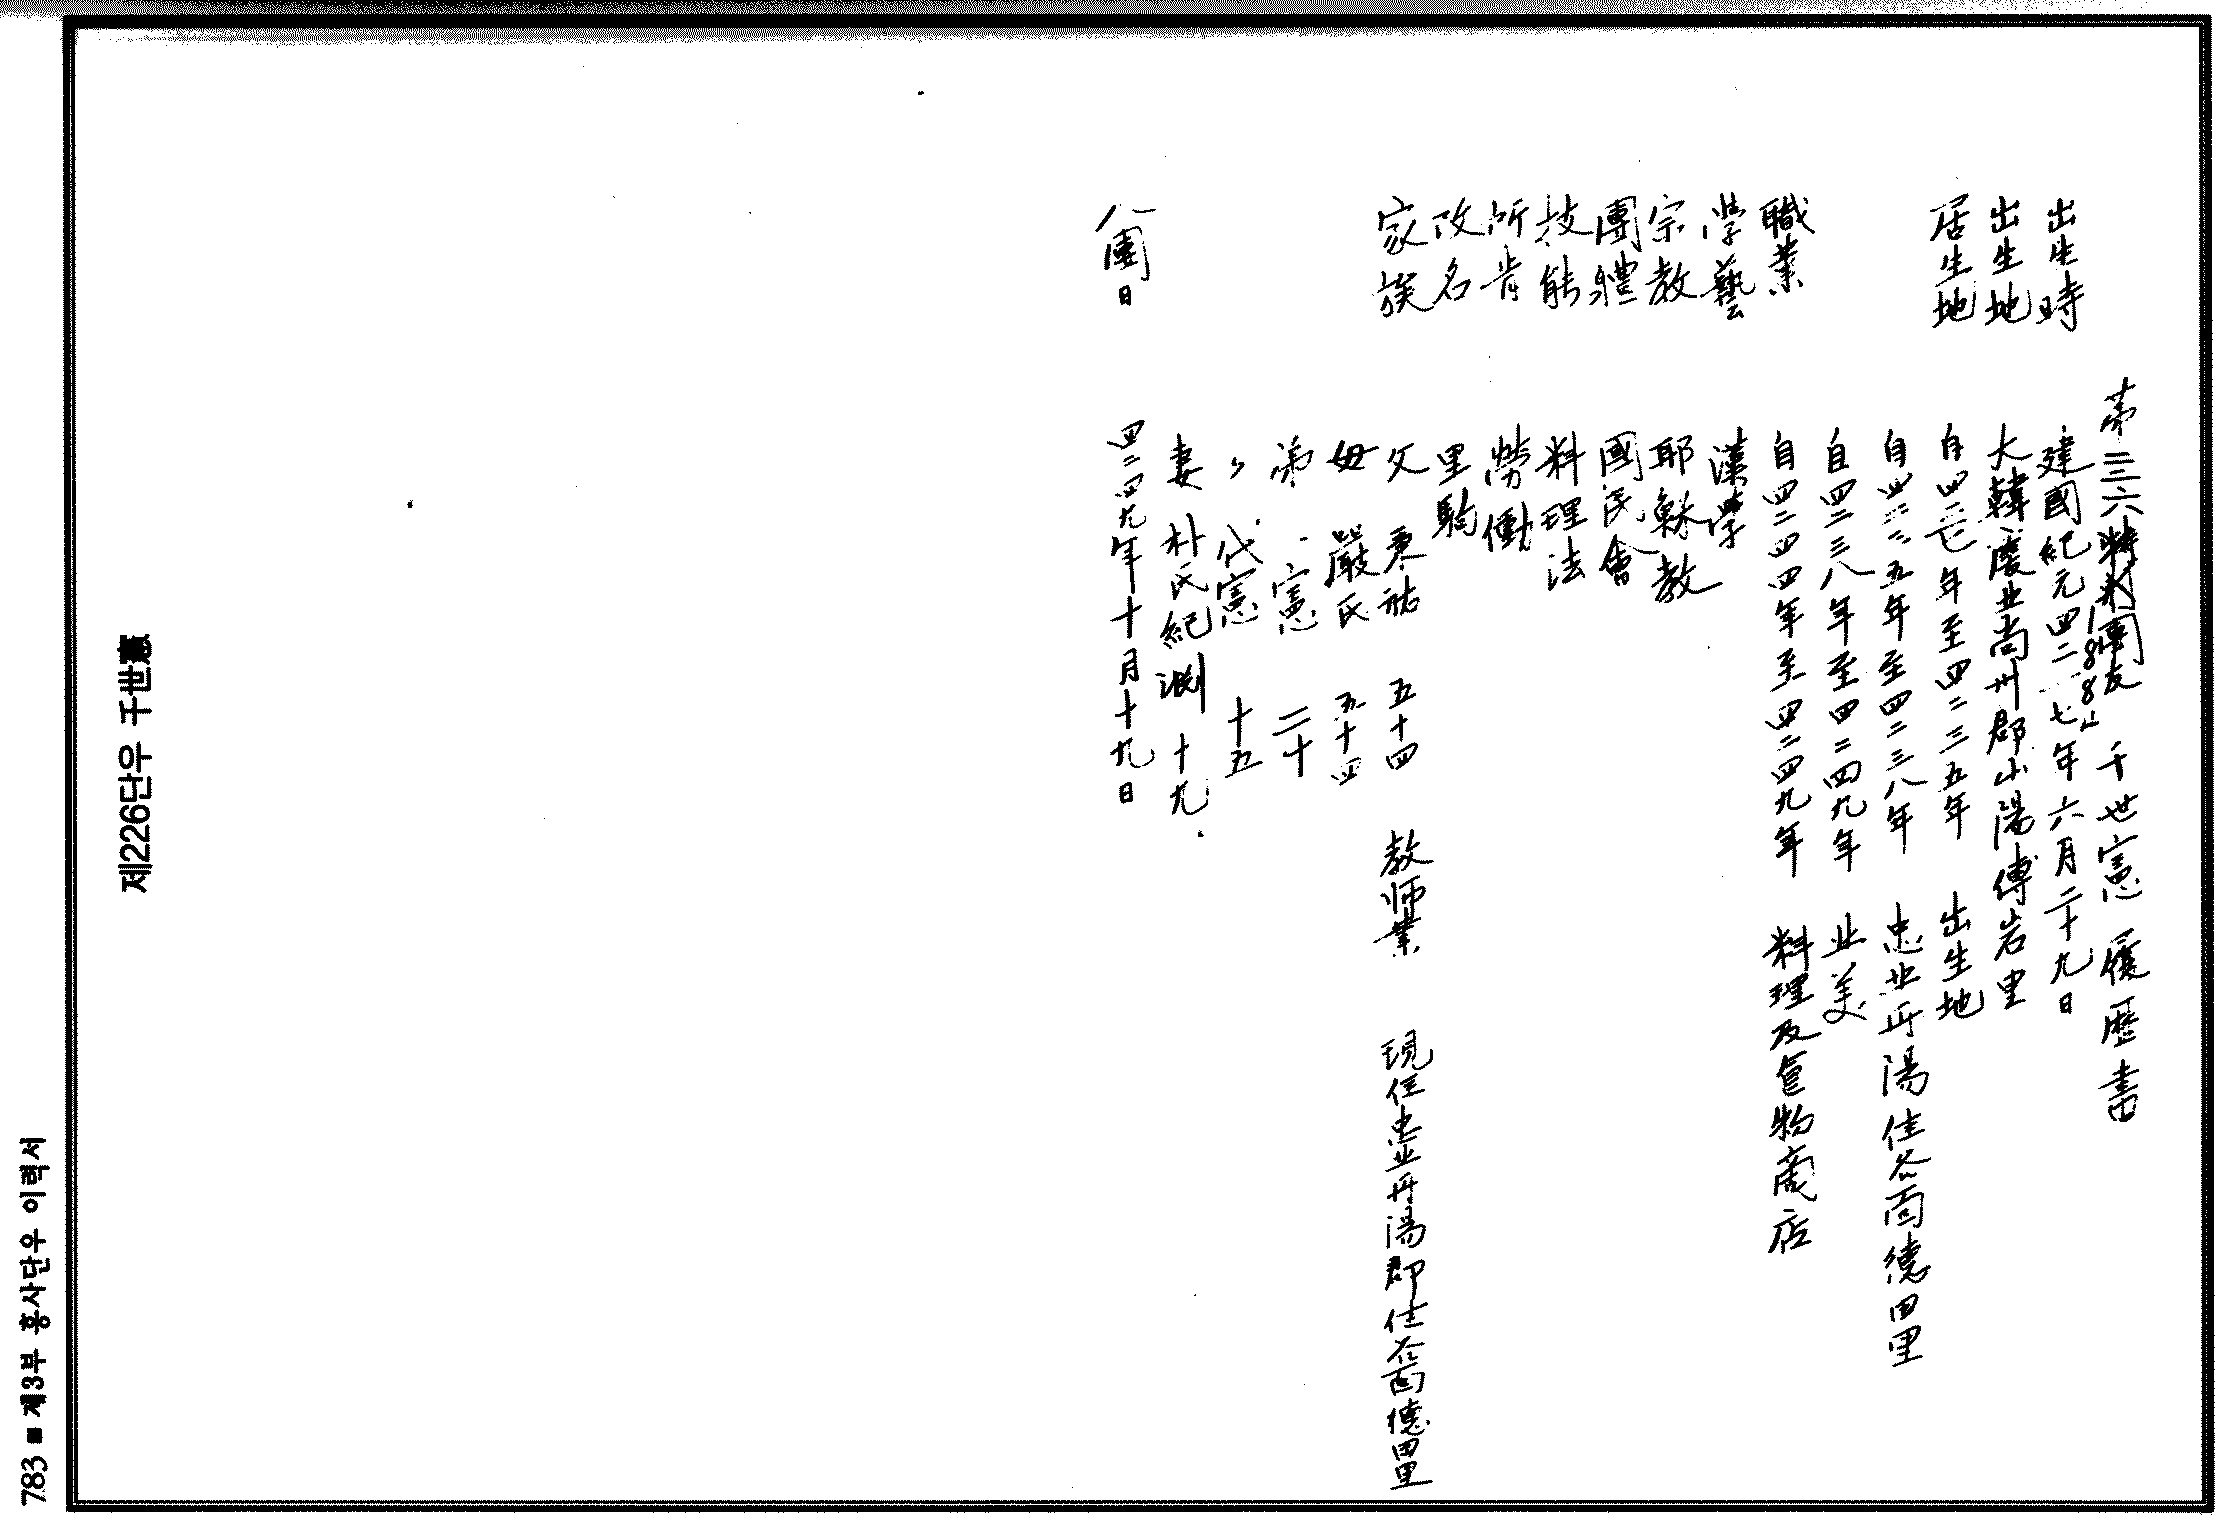 第二二六特別團友 千世憲 履歷書
出生時 建國紀元四二一七年六月二十九日
1884
出生地 大韓慶北尚州郡山陽傳岩里
居生地 自四二一七年至四二三五年 出生地
自四二三五年至四二三八年 忠北丹陽佳谷面德田里
自四二三八年至四二四九年 北美
職業 自四二四四年至四二四九年 料理及食物商店
學藝 漢學
宗教 耶穌教
團體 國民會
技能 料理法
所肯 勞働
改名 里駒
家族 父 秉祜 五十四 教師業 現住忠北丹陽郡佳谷面德田里
母 嚴氏 五十四
弟 憲 二十
〃 代憲 十五
妻 朴氏紀淵 十九
入團日 四二四九年十月十九日
제226단우 千世憲
783 ■ 제3부 흥사단우 이력서